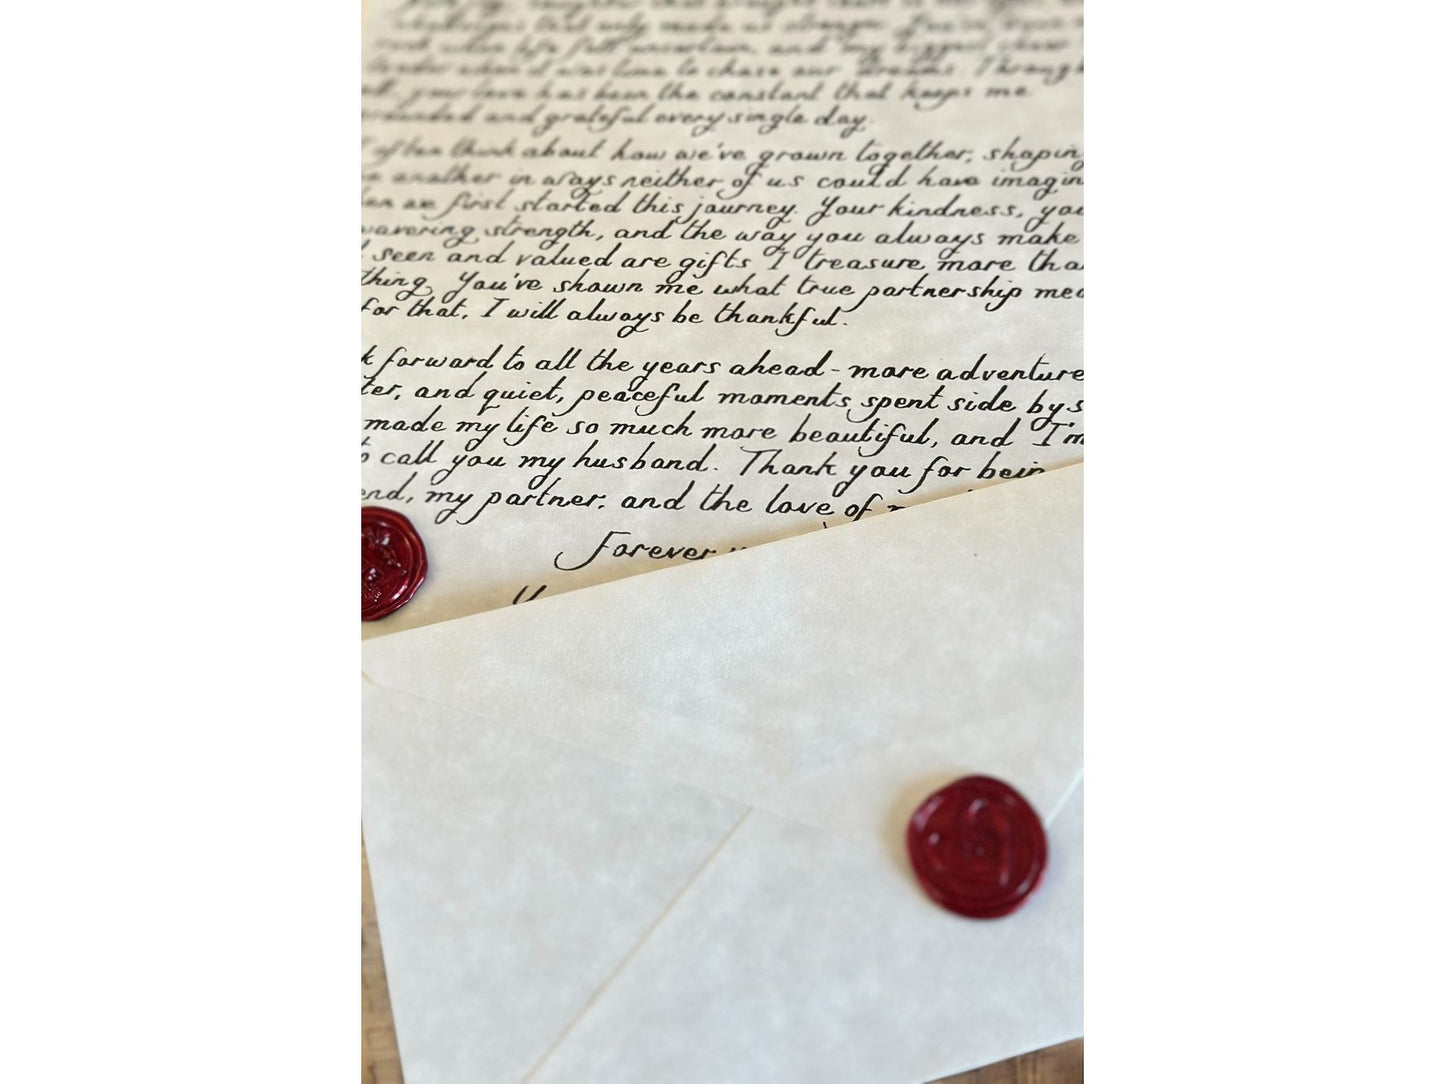 challenges that only made us stronger. You've been my
rock when life felt uncertain, and my biggest cheer
leader when it was time to chase our dreams. Through
all, your love has been the constant that keeps me
grounded and grateful every single day.
I often think about how we've grown together, shaping
one another in ways neither of us could have imagin
when we first started this journey. Your kindness, you
wavering strength, and the way you always make
seen and valued are gifts I treasure more tha
thing. You've shown me what true partnership mea
for that, I will always be thankful.
k forward to all the years ahead - more adventure
ter, and quiet, peaceful moments spent side by s
made my life so much more beautiful, and I'm
to call you my husband. Thank you for bein
end, my partner, and the love of
Forever